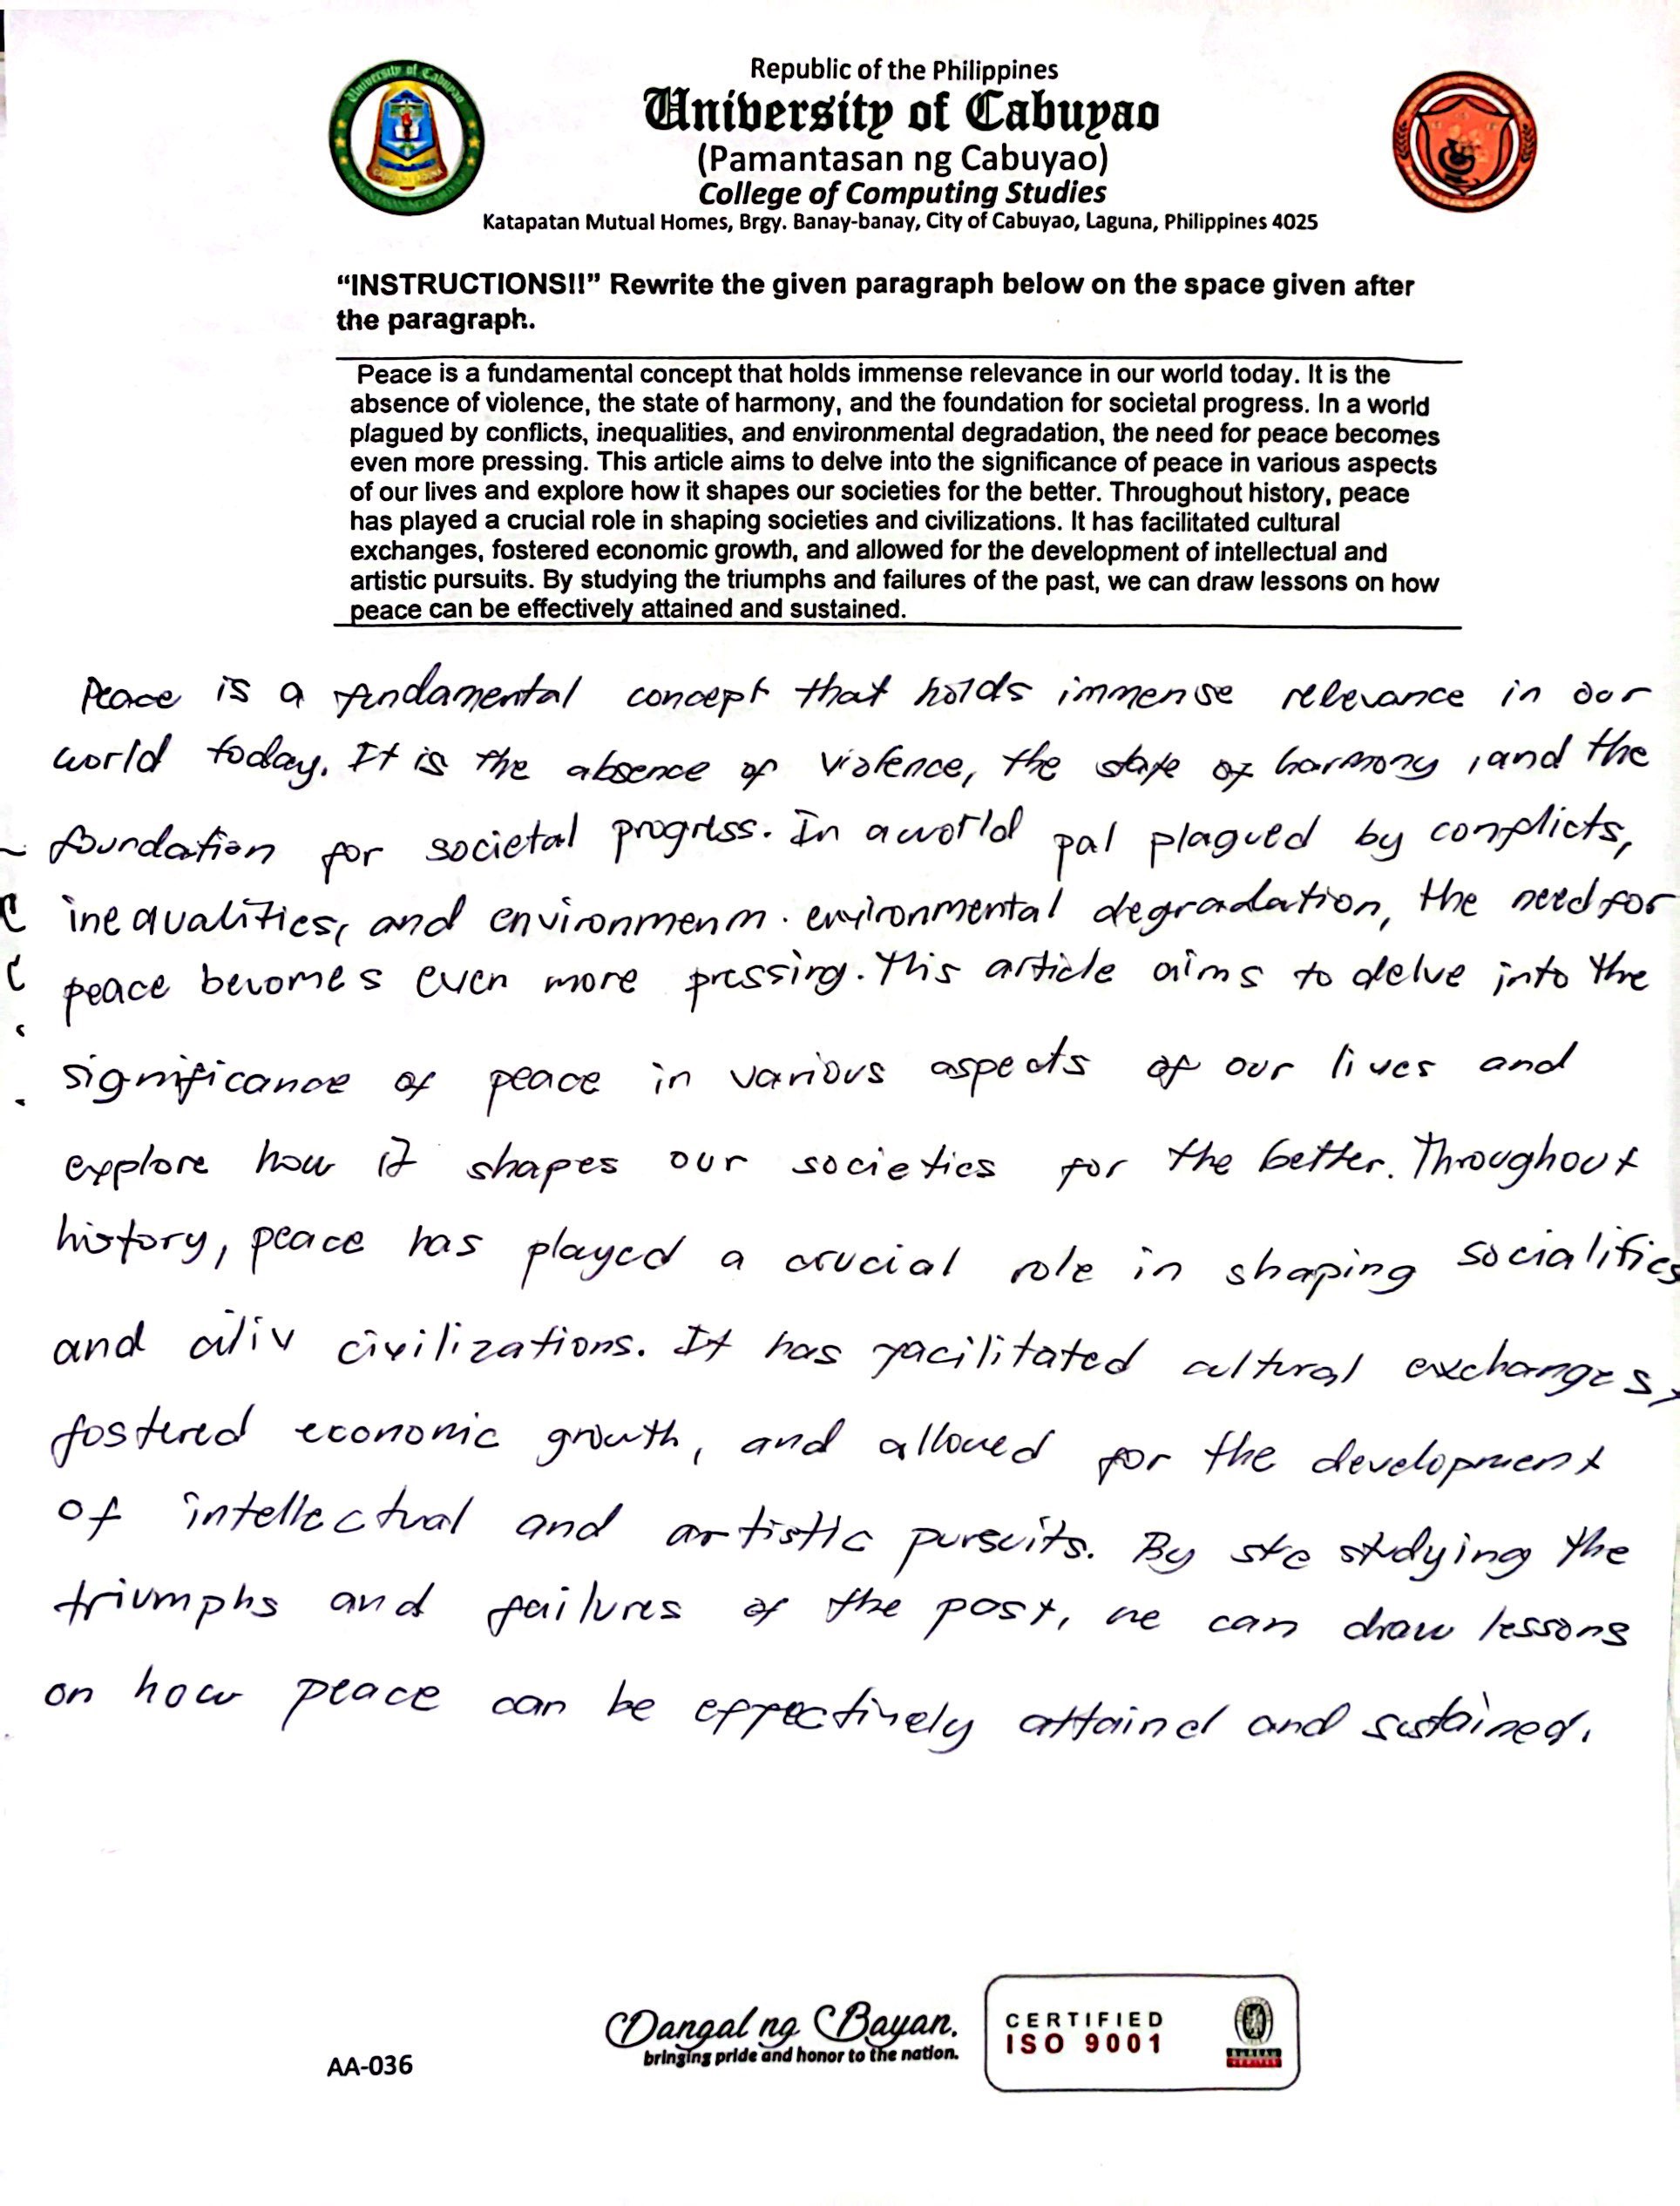 Republic of the Philippines
University of Cabuyao
(Pamantasan ng Cabuyao)
College of Computing Studies
Katapatan Mutual Homes, Brgy. Banay-banay, City of Cabuyao, Laguna, Philippines 4025
“INSTRUCTIONS!!” Rewrite the given paragraph below on the space given after
the paragraph.
Peace is a fundamental concept that holds immense relevance in our world today. It is the
absence of violence, the state of harmony, and the foundation for societal progress. In a world
plagued by conflicts, inequalities, and environmental degradation, the need for peace becomes
even more pressing. This article aims to delve into the significance of peace in various aspects
of our lives and explore how it shapes our societies for the better. Throughout history, peace
has played a crucial role in shaping societies and civilizations. It has facilitated cultural
exchanges, fostered economic growth, and allowed for the development of intellectual and
artistic pursuits. By studying the triumphs and failures of the past, we can draw lessons on how
peace can be effectively attained and sustained.
Peace is a fundamental concept that holds immense relevance in our
world today. It is the absence of violence, the state of harmony, and the
foundation for societal progress. In a world pal plagued by conflicts,
inequalities, and environmenm. environmental degradation, the need for
peace becomes even more pressing. This article aims to delve into the
significance of peace in various aspects of our lives and
explore how it shapes our societies for the better. Throughout
history, peace has played a crucial role in shaping socialities
and ciliv civilizations. It has facilitated cultural exchanges,
fostered economic growth, and allowed for the development
of intellectual and artistic pursuits. By ste studying the
triumphs and failures of the past, we can draw lessons
on how peace can be effectively attained and sustained.
Dangal ng Bayan.
bringing pride and honor to the nation.
AA-036
CERTIFIED
ISO 9001